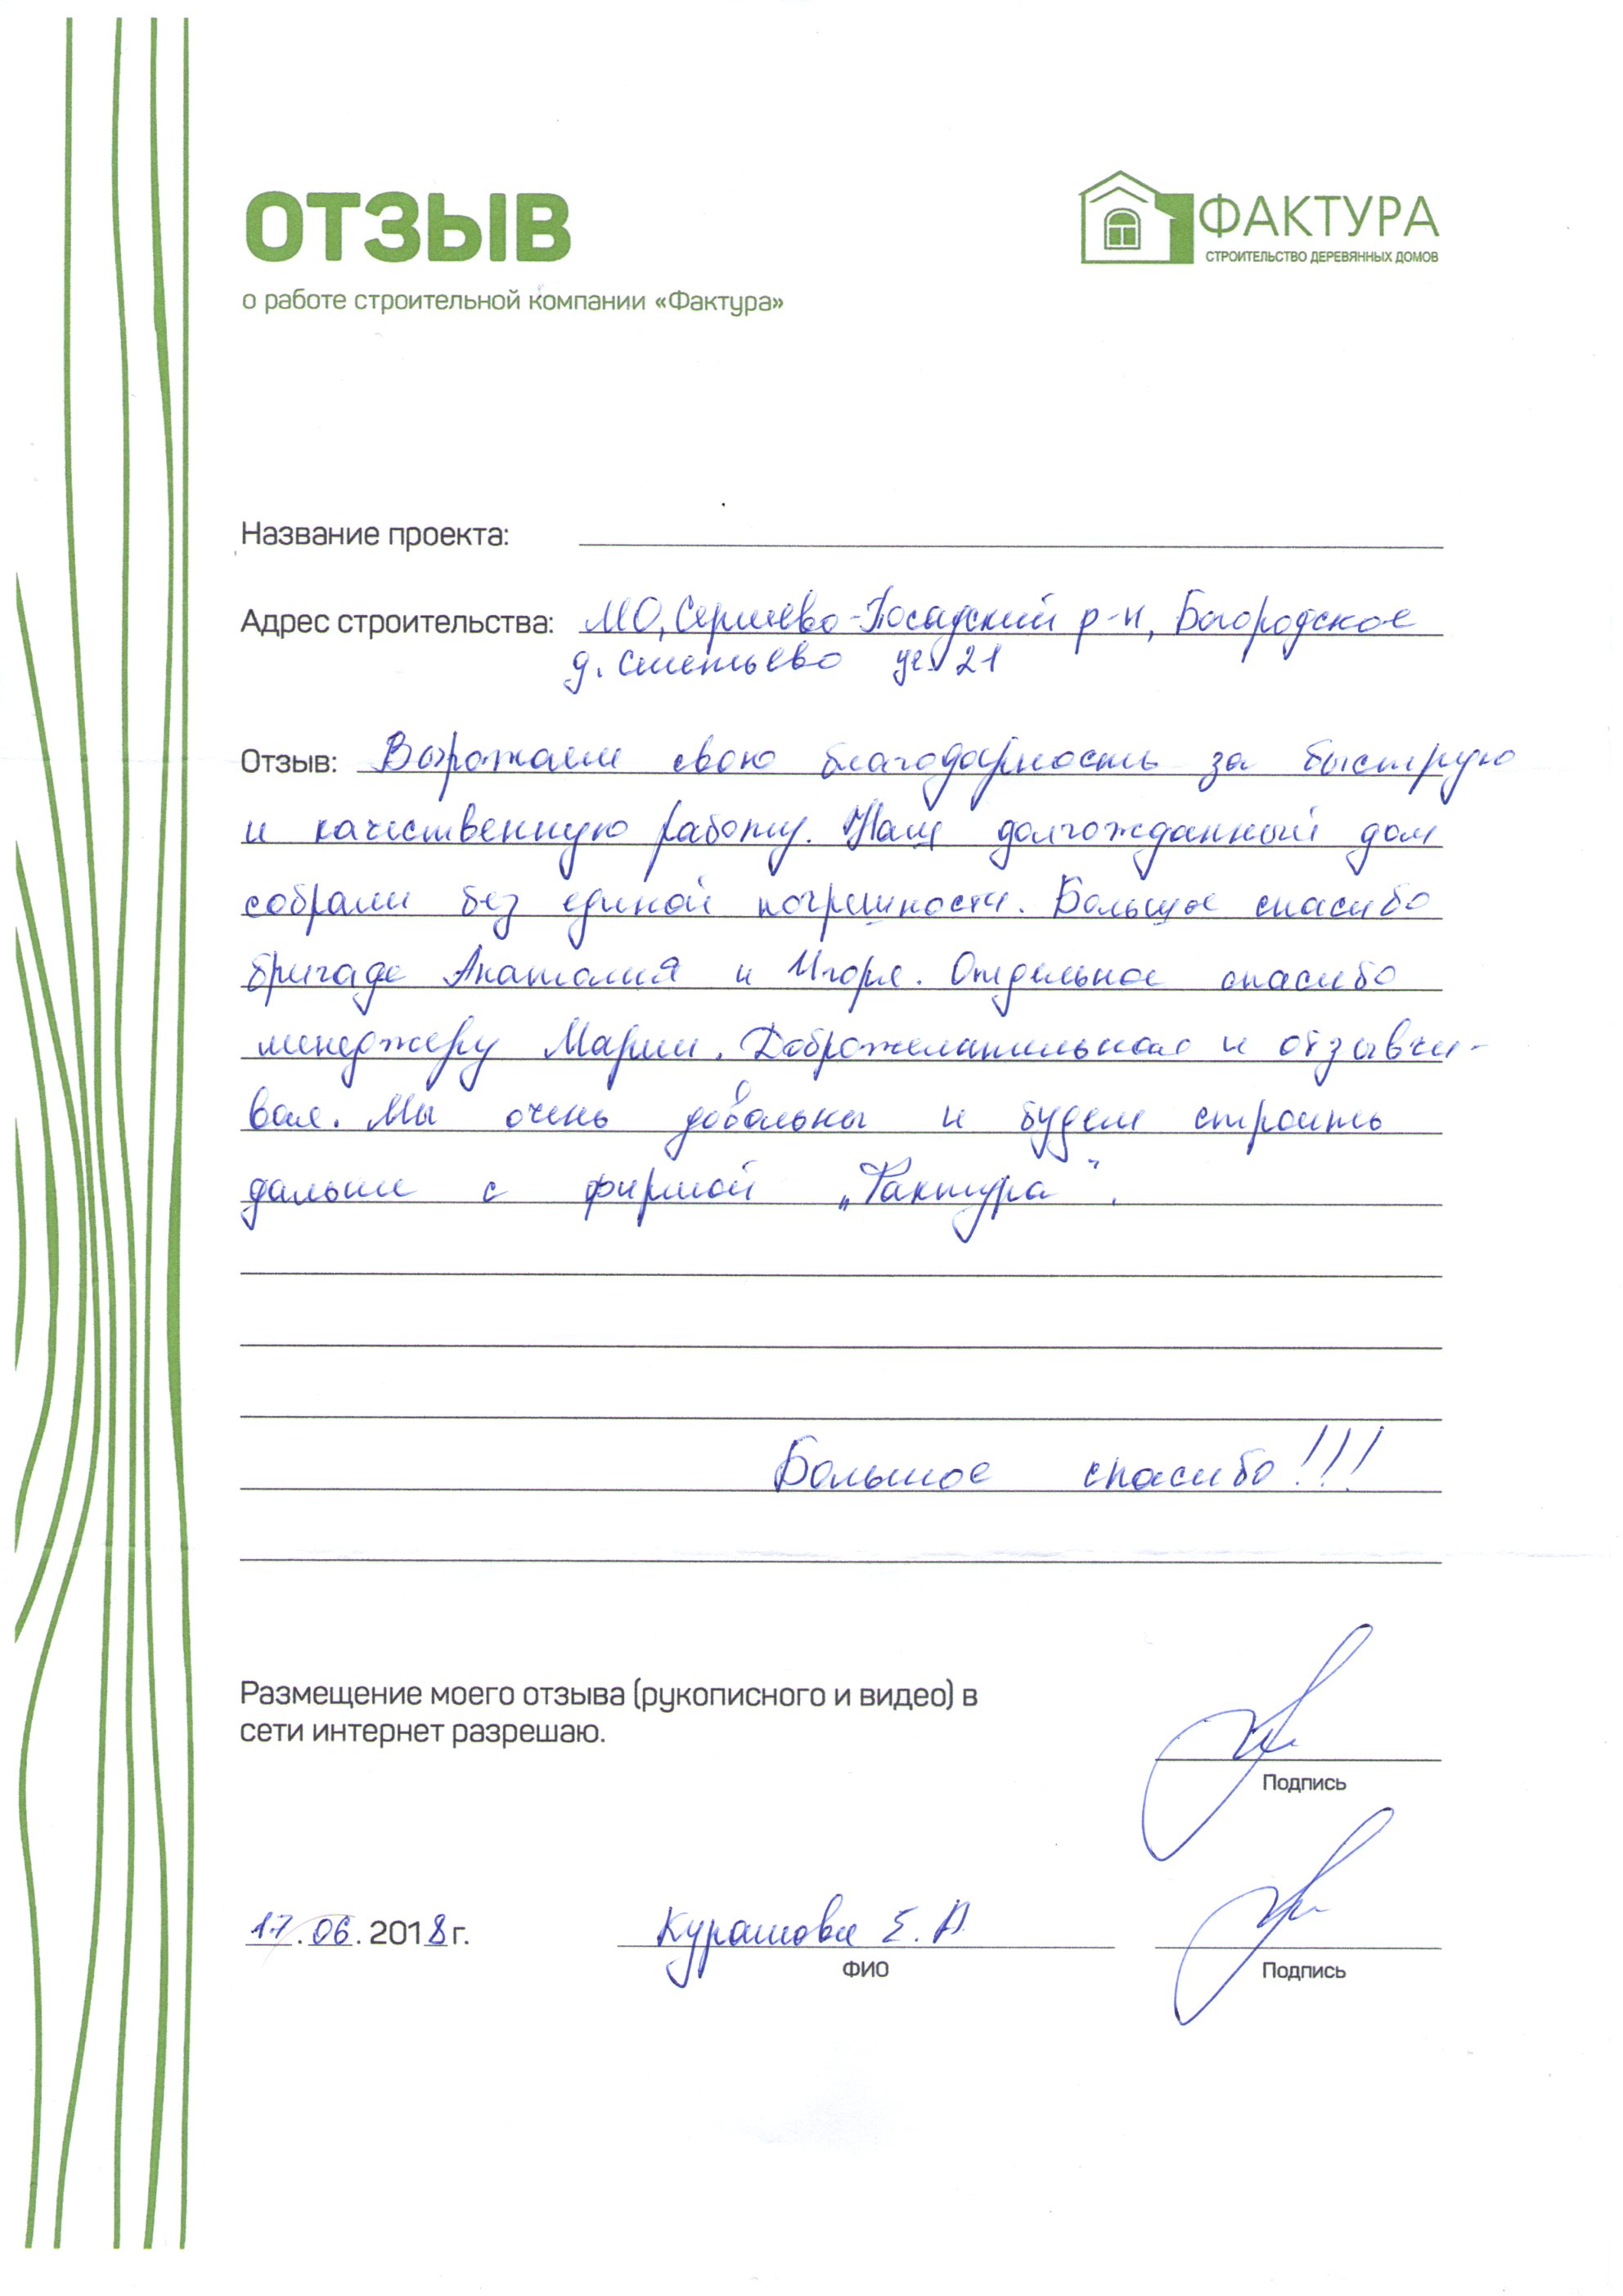 ОТЗЫВ
ФАКТУРА
СТРОИТЕЛЬСТВО ДЕРЕВЯННЫХ ДОМОВ
о работе строительной компании «Фактура»
Название проекта:
Адрес строительства: МО, Сергиево-Посадский р-н, Богородское
д. Сметьево уч. 21
Отзыв: Выражаем свою благодарность за быструю
и качественную работу. Наш долгожданный дом
собрали без единой погрешности. Большое спасибо
бригаде Анатолия и Игоря. Отдельное спасибо
менеджеру Марии. Доброжелательная и отзывчи-
вая. Мы очень довольны и будем строить
дальше с фирмой „Фактура“.
Большое спасибо!!!
Размещение моего отзыва (рукописного и видео) в
сети интернет разрешаю.
Подпись
17.06.2018г. Курашова Е. А.
ФИО
Подпись